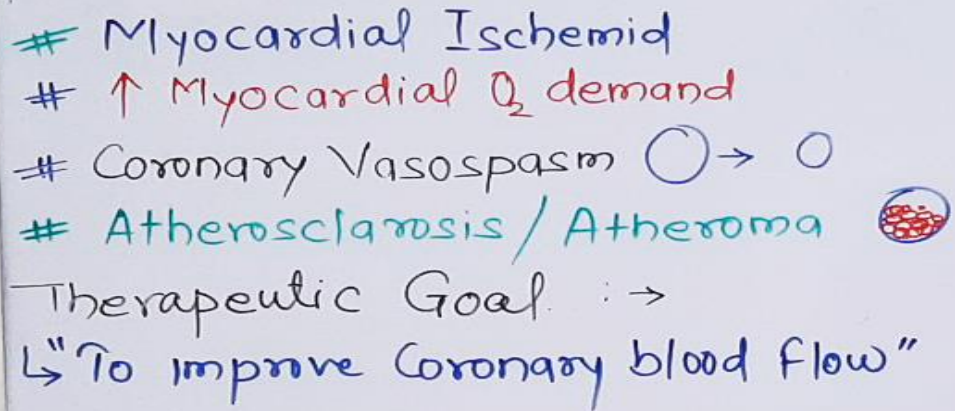 # Myocardial Ischemid
# ↑ Myocardial O₂ demand
# Coronary Vasospasm ◯→ ○
# Atherosclarosis / Atheroma
Therapeutic Goal :→
↳"To improve Coronary blood flow"